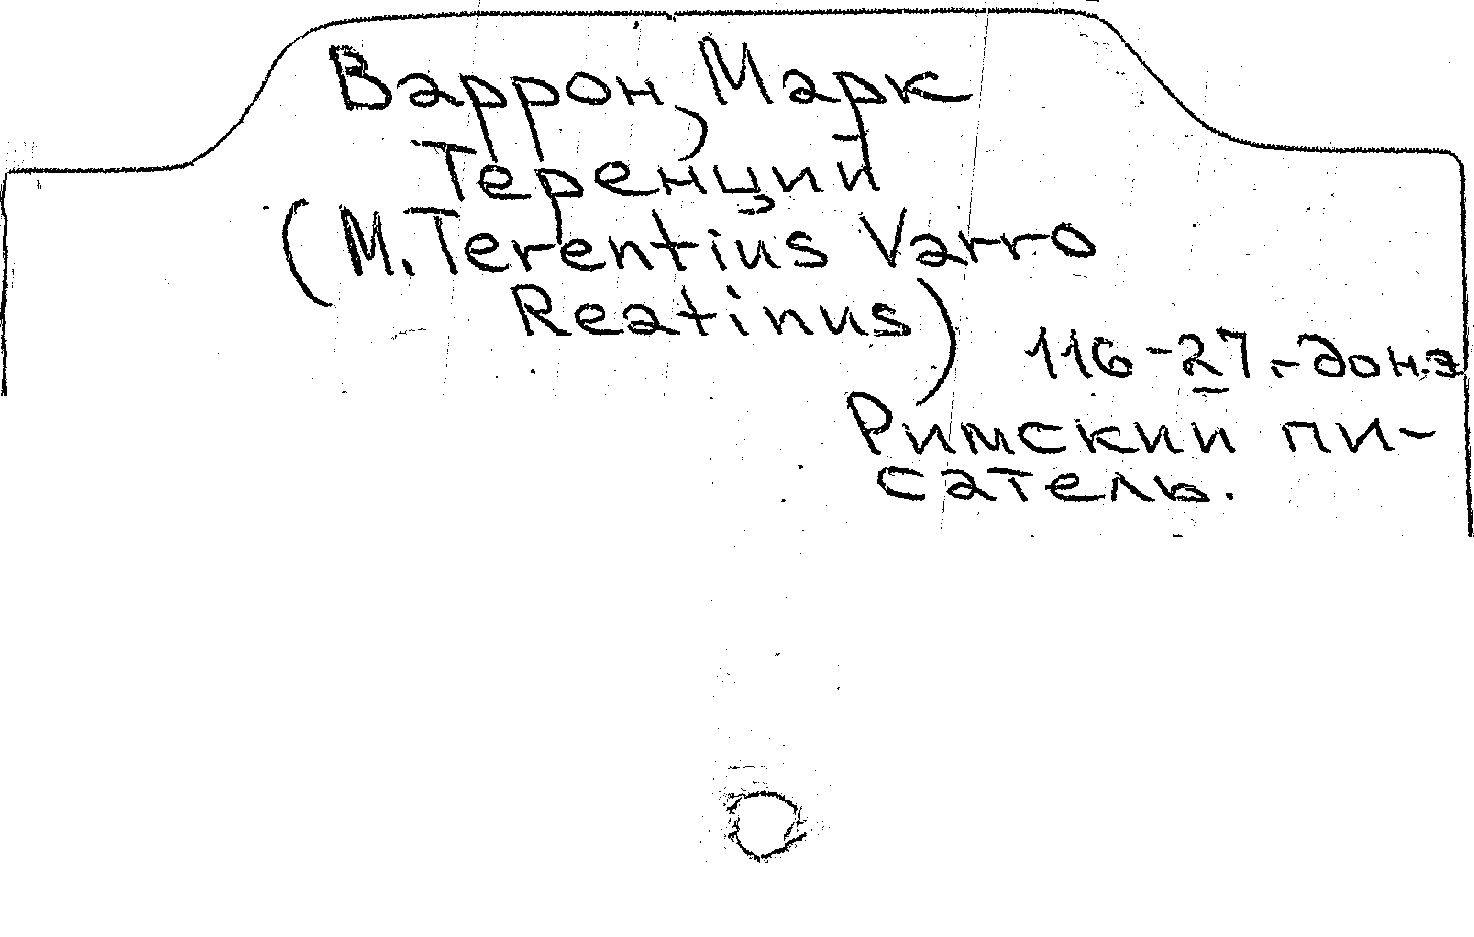 Варрон, Марк
Теренций
(M. Terentius Varro
Reatinus)
116-27.-до н.э
Римский пи-
сатель.